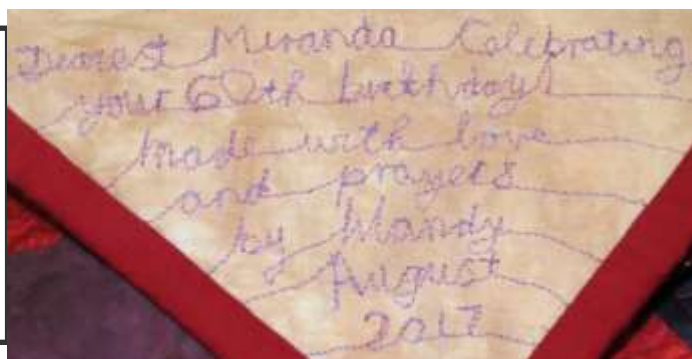 Dearest Miranda Celebrating
your 60th birthday!
made with love
and prayers
by Mandy
August
2017